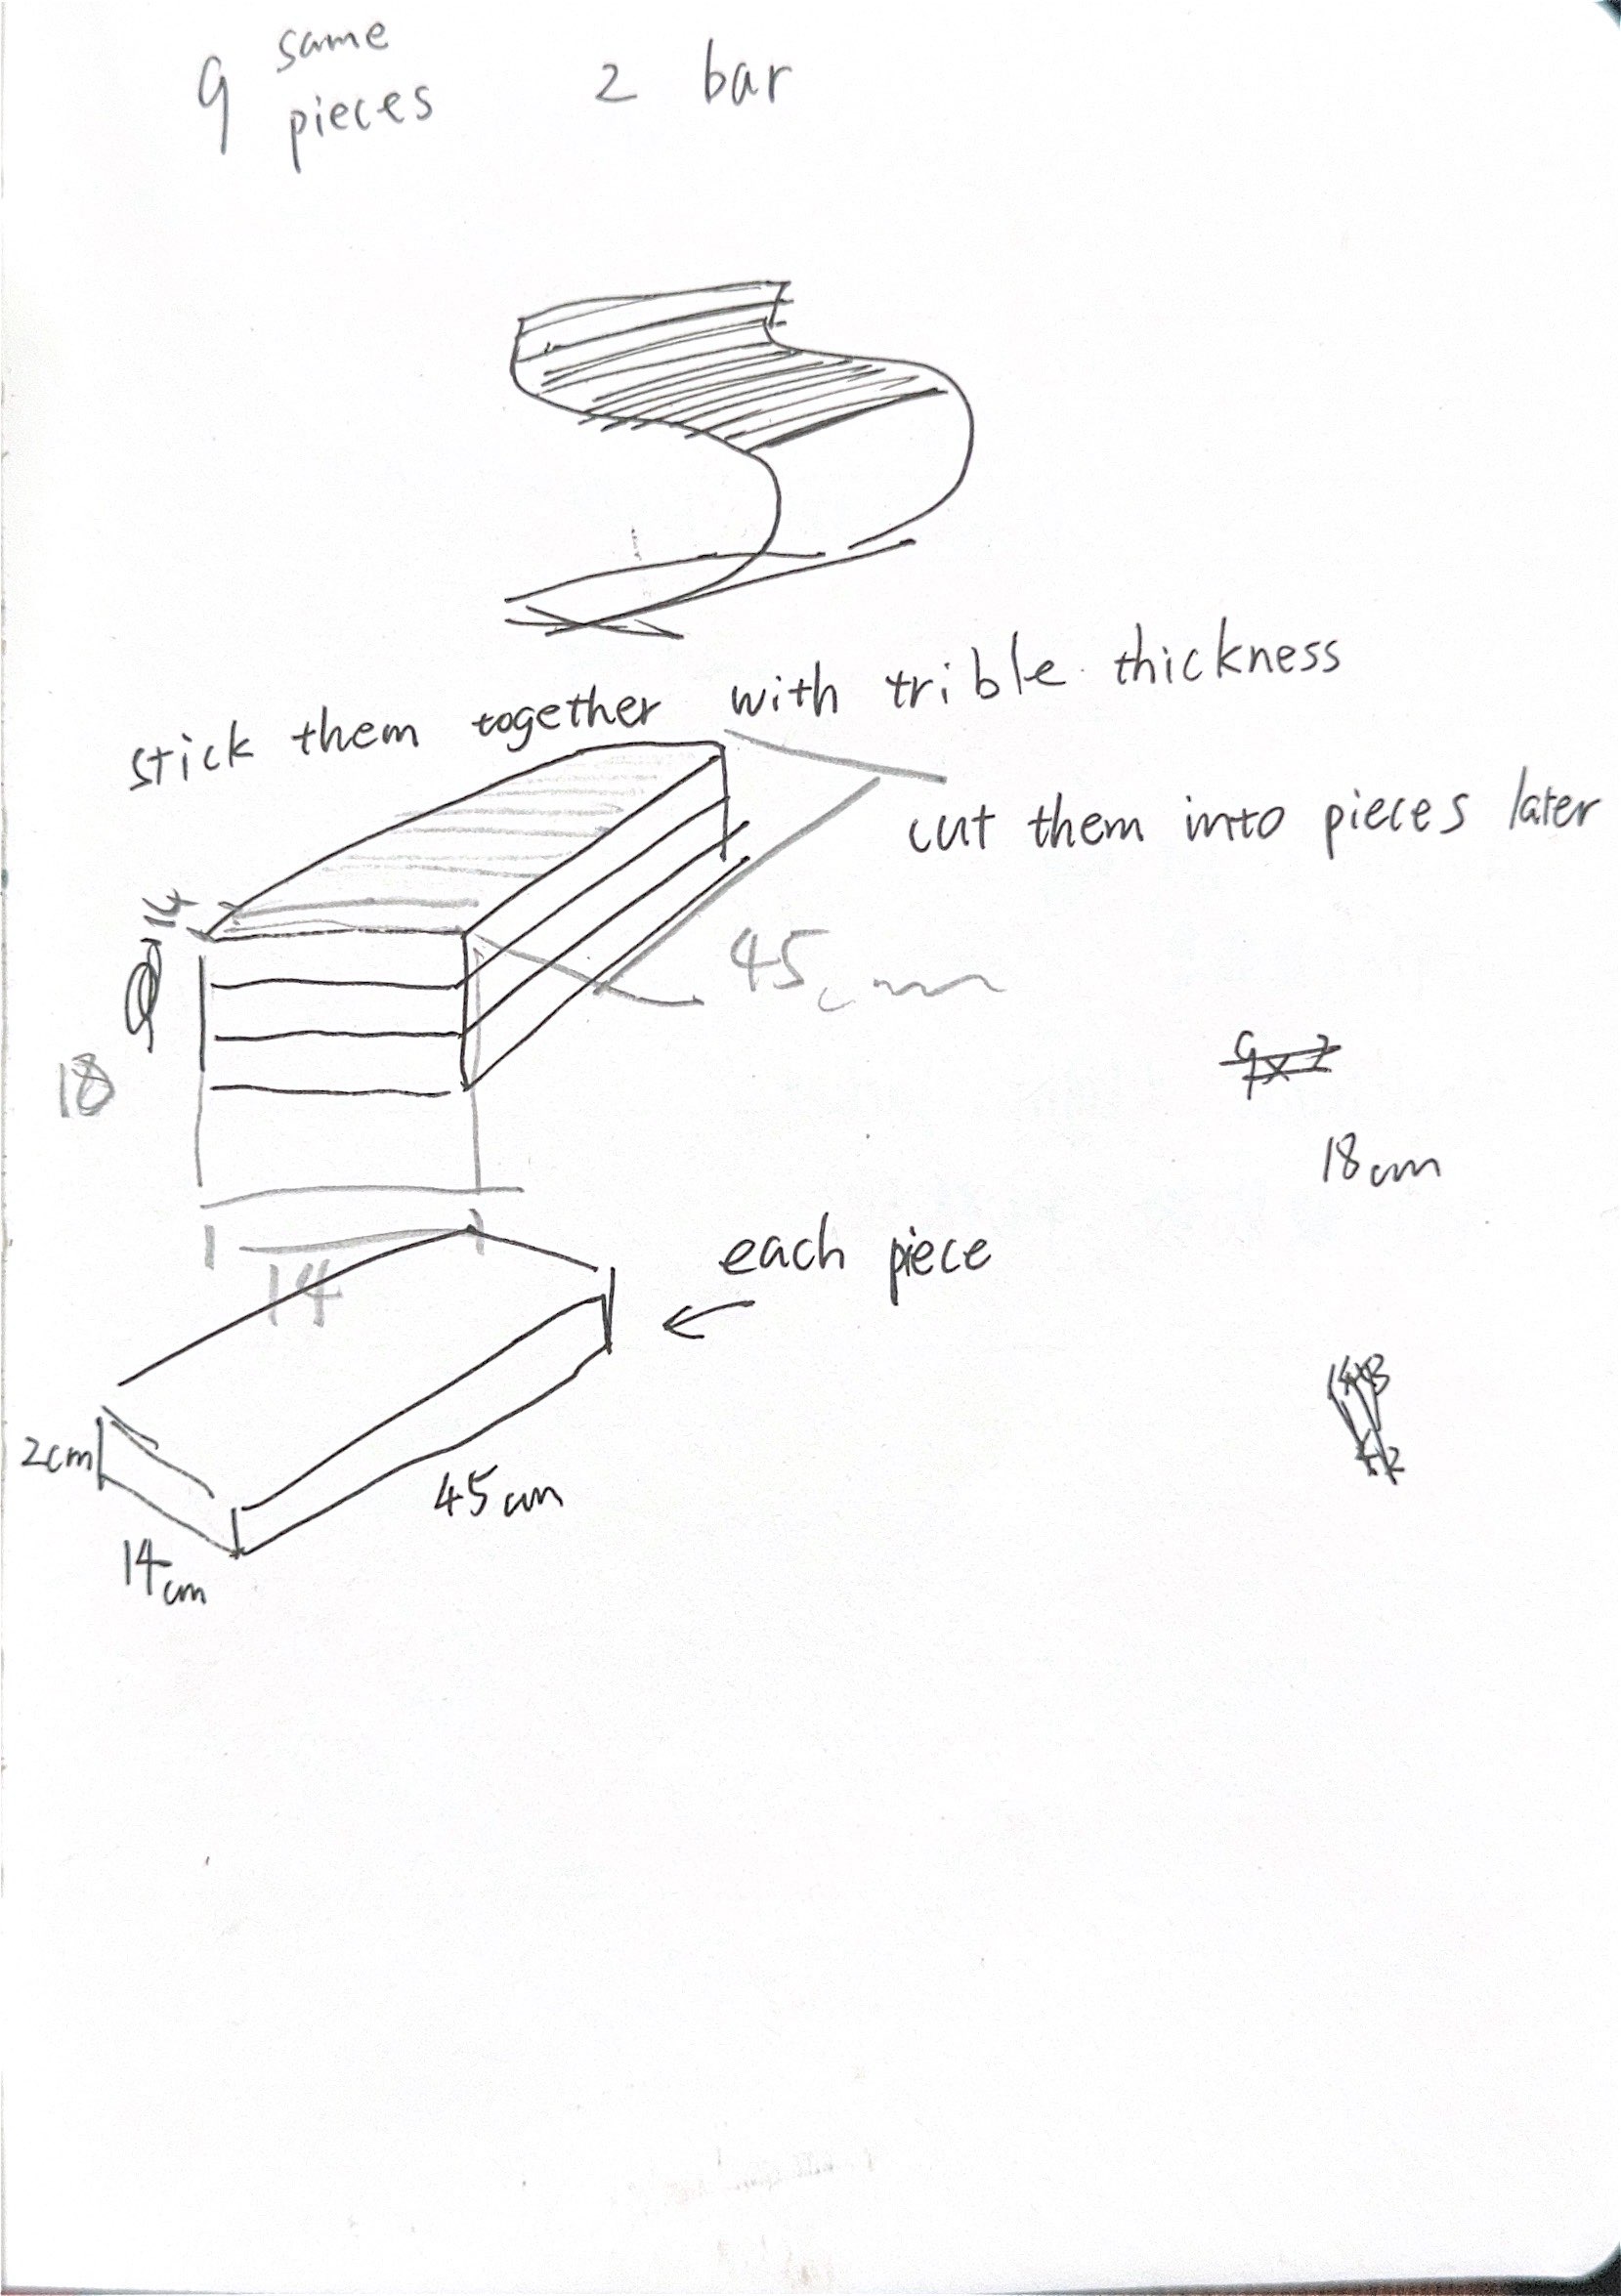 9 same pieces 2 bar
stick them together with trible thickness
cut them into pieces later
14
45cm
18
9x2
18cm
14
each piece
2cm
45cm
14cm